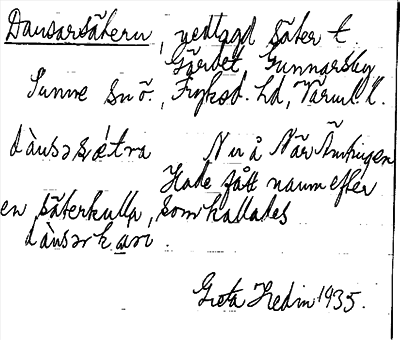 Dansarsätern, nedlagd säter t.
Gärdet Gunnarsby
Sunne snö., Fryksd. hd, Värml. l.
dànsəsǽtra N u å När Ämtvigen
Hade fått namn efter
en säterkulla, som kallades
dànsərkari.
Greta Hedin 1935.